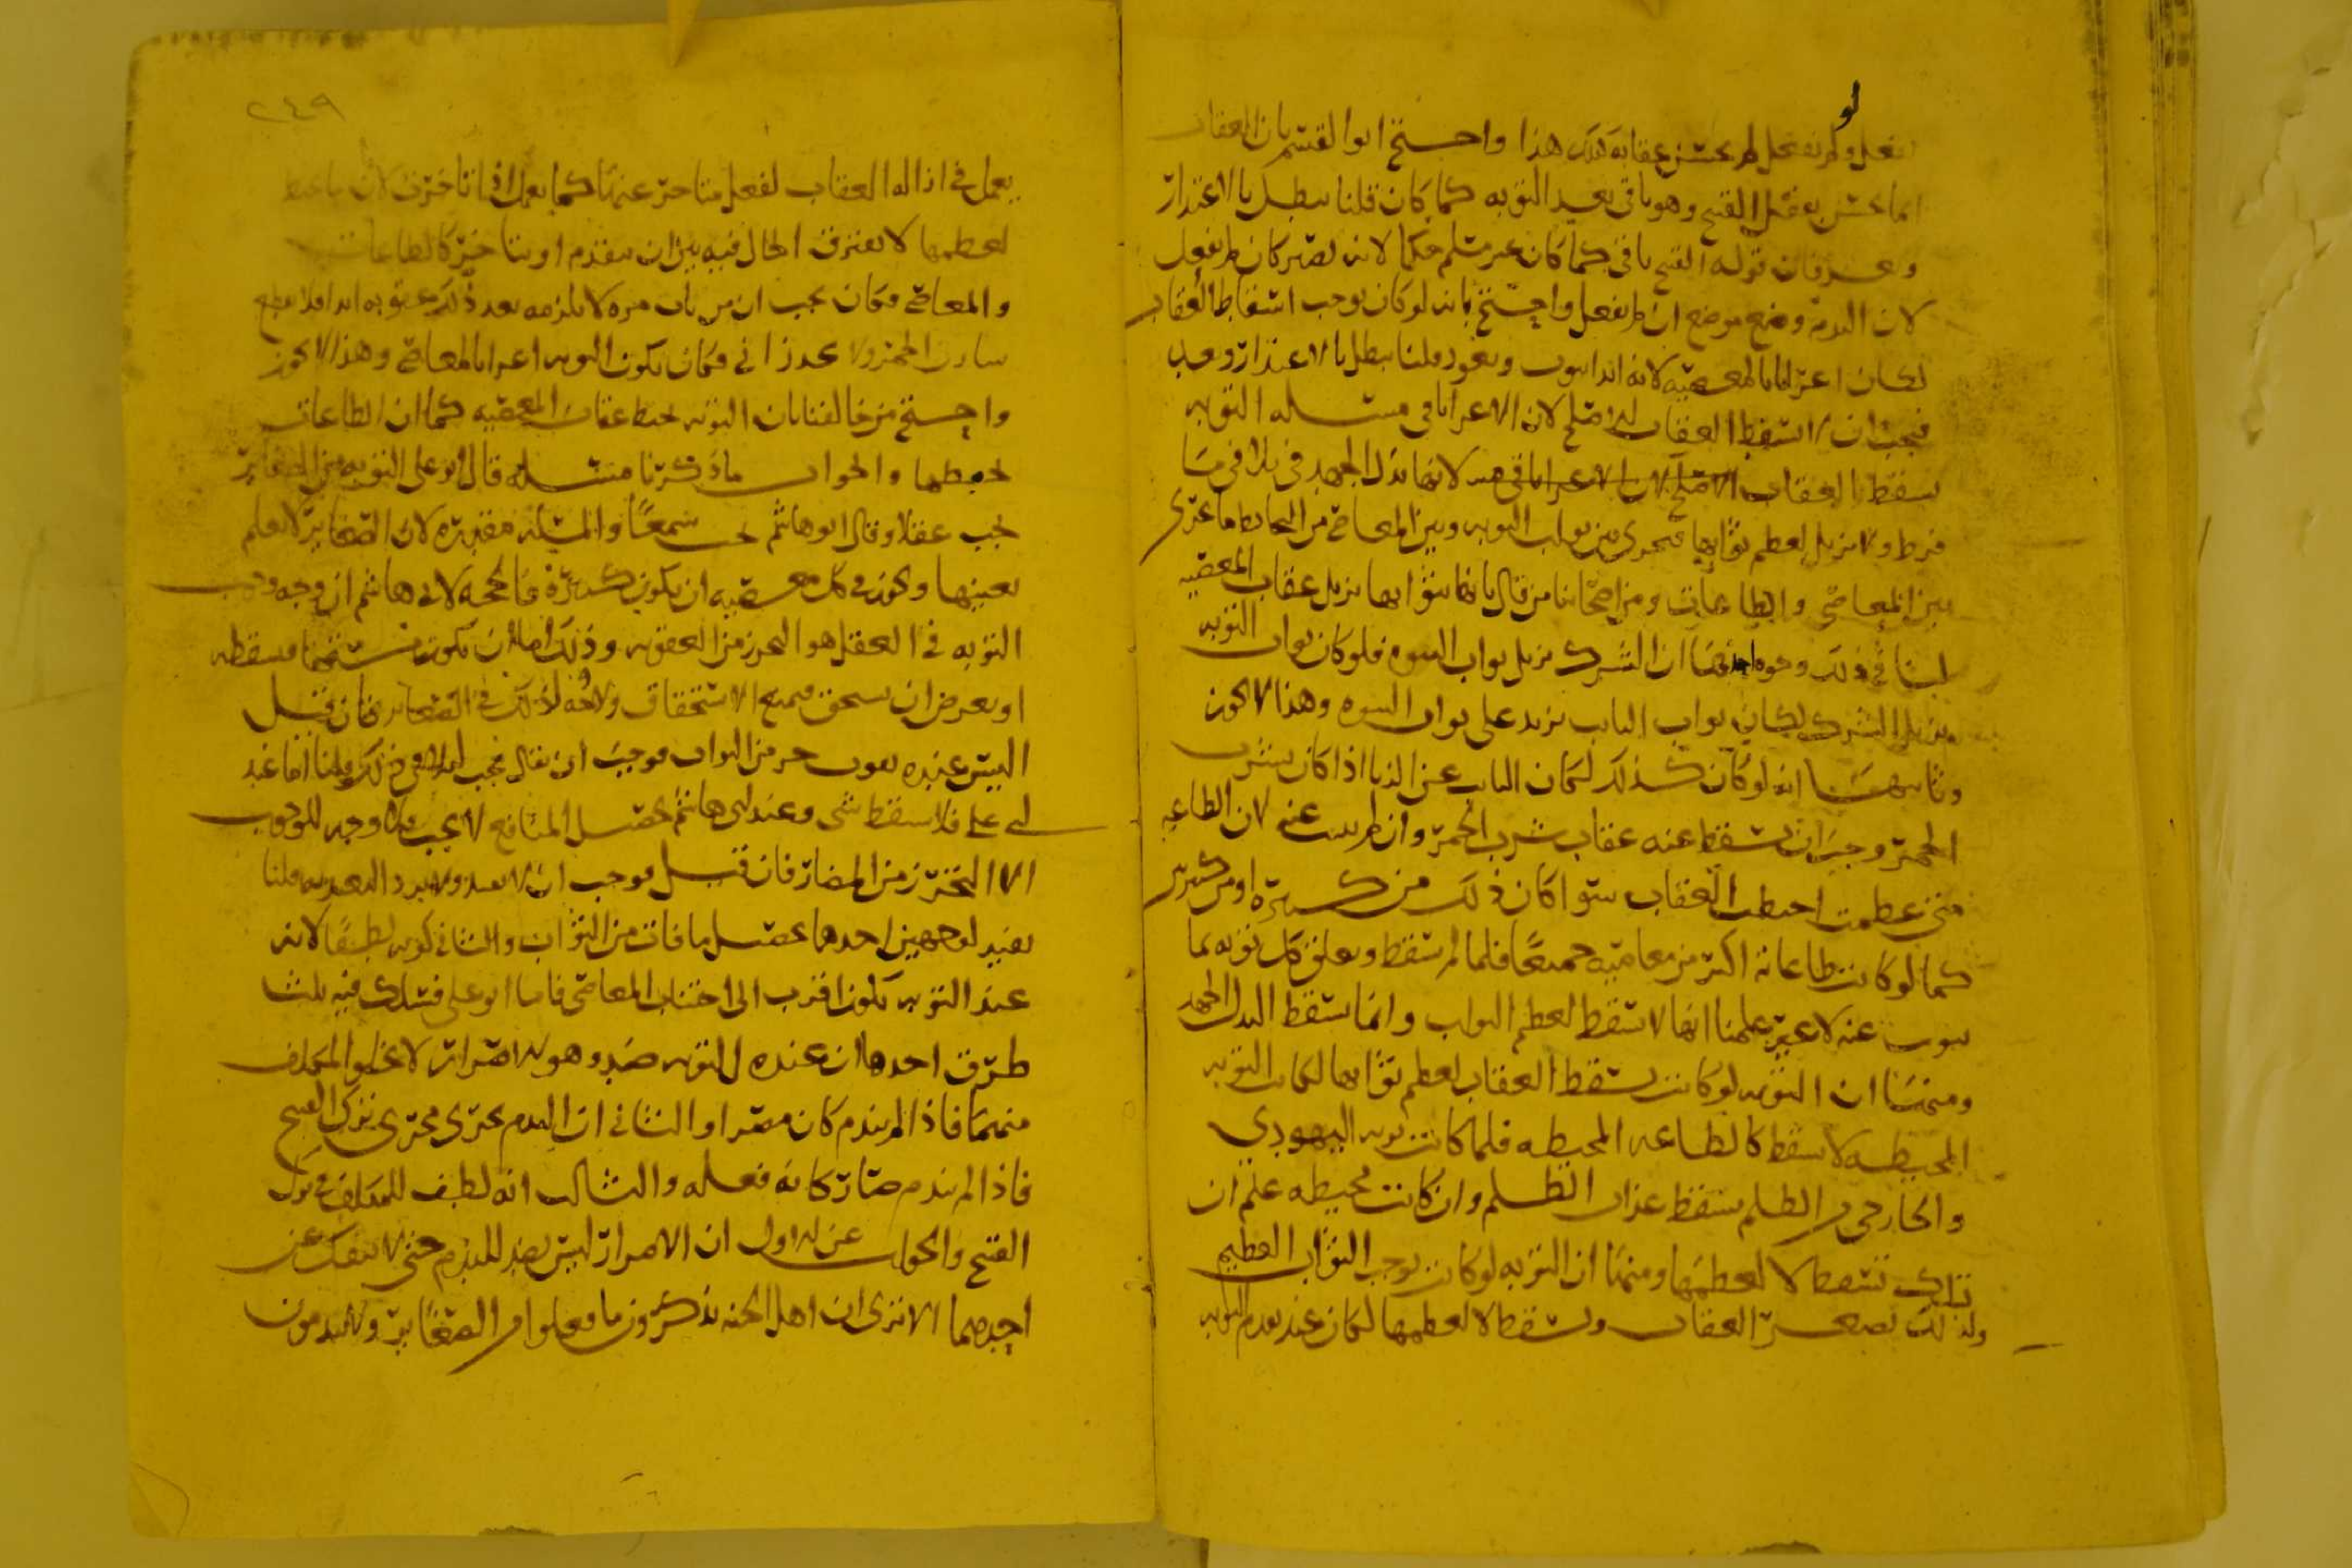 لو
يفعل ولم يفعل لم يحسن عقابه فكذلك هذا واحتج ابو القسم بان العقاب
انما يحسن بفعل القبيح وهو باقي بعد التوبه كما كان قلنا يبطل بالاعتذار
وبعد فان قوله القبيح باقي كما كان غير مسلم حكما لانه يصير كان لم يفعل
لان الندم وضع موضع ان لم يفعل واحتج بانه لو كان يوجب اسقاط العقاب
لكان اغراءا بالمعصيه لانه ابدا يتوب ويعود قلنا يبطل بالاعتذار وبعد
فيجب ان لا تسقط العقاب الاصلح لان الاغرا باقي مسئله التوبه
تسقط العقاب لانها بذل الجهد في تلافي ما
فرط ولا تزيل لعظم ثوابها فيجري بين ثواب التوبه وبين المعاصي من التحابط ما يجري
بين المعاصي والطاعات ومن اصحابنا من قال بانها بثوابها تزيل عقاب المعصيه
لنا في ذلك وجوه احدها ان الشرك يزيل ثواب النبوه فلو كان ثواب التوبه
يزيل الشرك لكان ثواب التايب يزيد على ثواب النبوه وهذا لا يجوز
وثانيها انه لو كان كذلك لكان التايب عن الزنا اذا كان يشرب
الخمر وجب ان تسقط عنه عقاب شرب الخمر وان لم يتب عنه لان الطاعه
متى عظمت احبطت العقاب سوا كان ذلك من كبيره او من كبير
كما لو كانت طاعاته اكثر من معاصيه جميعا فلما لم تسقط وتعلق كل توبه بما
يتوب عنه لا غير علمنا انها لا تسقط لعظم الثواب وانما تسقط لبذل الجهد
ومنها ان التوبه لو كانت تسقط العقاب لعظم ثوابها لكانت التوبه
المحبطه لا تسقط كالطاعه المحبطه فلما كانت توبه اليهودي
والخارجي من الظلم تسقط عذاب الظلم وان كانت محبطه علم ان
تلك تسقط لا لعظمها ومنها ان التوبه لو كانت توجب الثواب العظيم
ولذلك العقاب وتسقط لا لعظمها لكان عند تقدم التوبه
٢٤٩
يعمل في ازاله العقاب لفعل متاخر عنها كما يعمل اذا تاخرت لان ما يحبط
لعظمها لا يفترق الحال فيه بين ان يتقدم او يتاخر كالطاعات
والمعاصي فكان يجب ان من تاب مره لا يلزمه بعد ذلك عقوبه ابدا
الخمر ولا يحد زاني فكان تكون التوبه اغراءا بالمعاصي وهذا لا يجوز
واحتج من خالفنا بان التوبه تحبط عقاب المعصيه كما ان الطاعات
تحبطها والجواب ما ذكرنا مسئله قال ابو علي التوبه من الصغاير
تجب عقلا وقال ابو هاشم تجب سمعا والمسئله مقدره لان الصغاير لا تعلم
بعينها ويجوز في كل معصيه ان تكون كبيره فالحجه لابي هاشم ان وجه وجوب
التوبه في العقل هو التحرز من العقوبه وذلك اما ان يكون مستحقا فيسقطه
او بعرض ان يستحق فيمنع الاستحقاق ولا وجه لذلك في الصغاير فان قيل
اليس عنده يفوت جزء من الثواب فوجب ان يقال يجب لتلافي ذلك قلنا اما عند
ابي علي فلا يسقط شي وعند ابي هاشم تحصيل المنافع لا يجب ولا وجه للوجوب
الا التحرز من المضار فان قيل فوجب ان لا يفيد ولا يرد التعبد به قلنا
يفيد لوجهين احدهما تحصيل ما فات من الثواب والثاني كونه لطفا لانه
عند التوبه يكون اقرب الى اجتناب المعاصي فاما ابو علي فسلك فيه ثلث
طرق احدها ان عنده للتوبه ضد وهو الاصرار لا يخلوا المكلف
منهما فاذا لم يندم كان مصرا والثاني ان الندم يجري مجرى ترك القبيح
فاذا لم يندم صار كانه فعله والثالث انه لطف للمكلف في ترك
القبيح والجواب عن الاول ان الاصرار ليس بضد للندم حتى لا ينفك عن
احدهما الا ترى ان اهل الجنه يذكرون ما فعلوا من الصغاير ولا يندمون